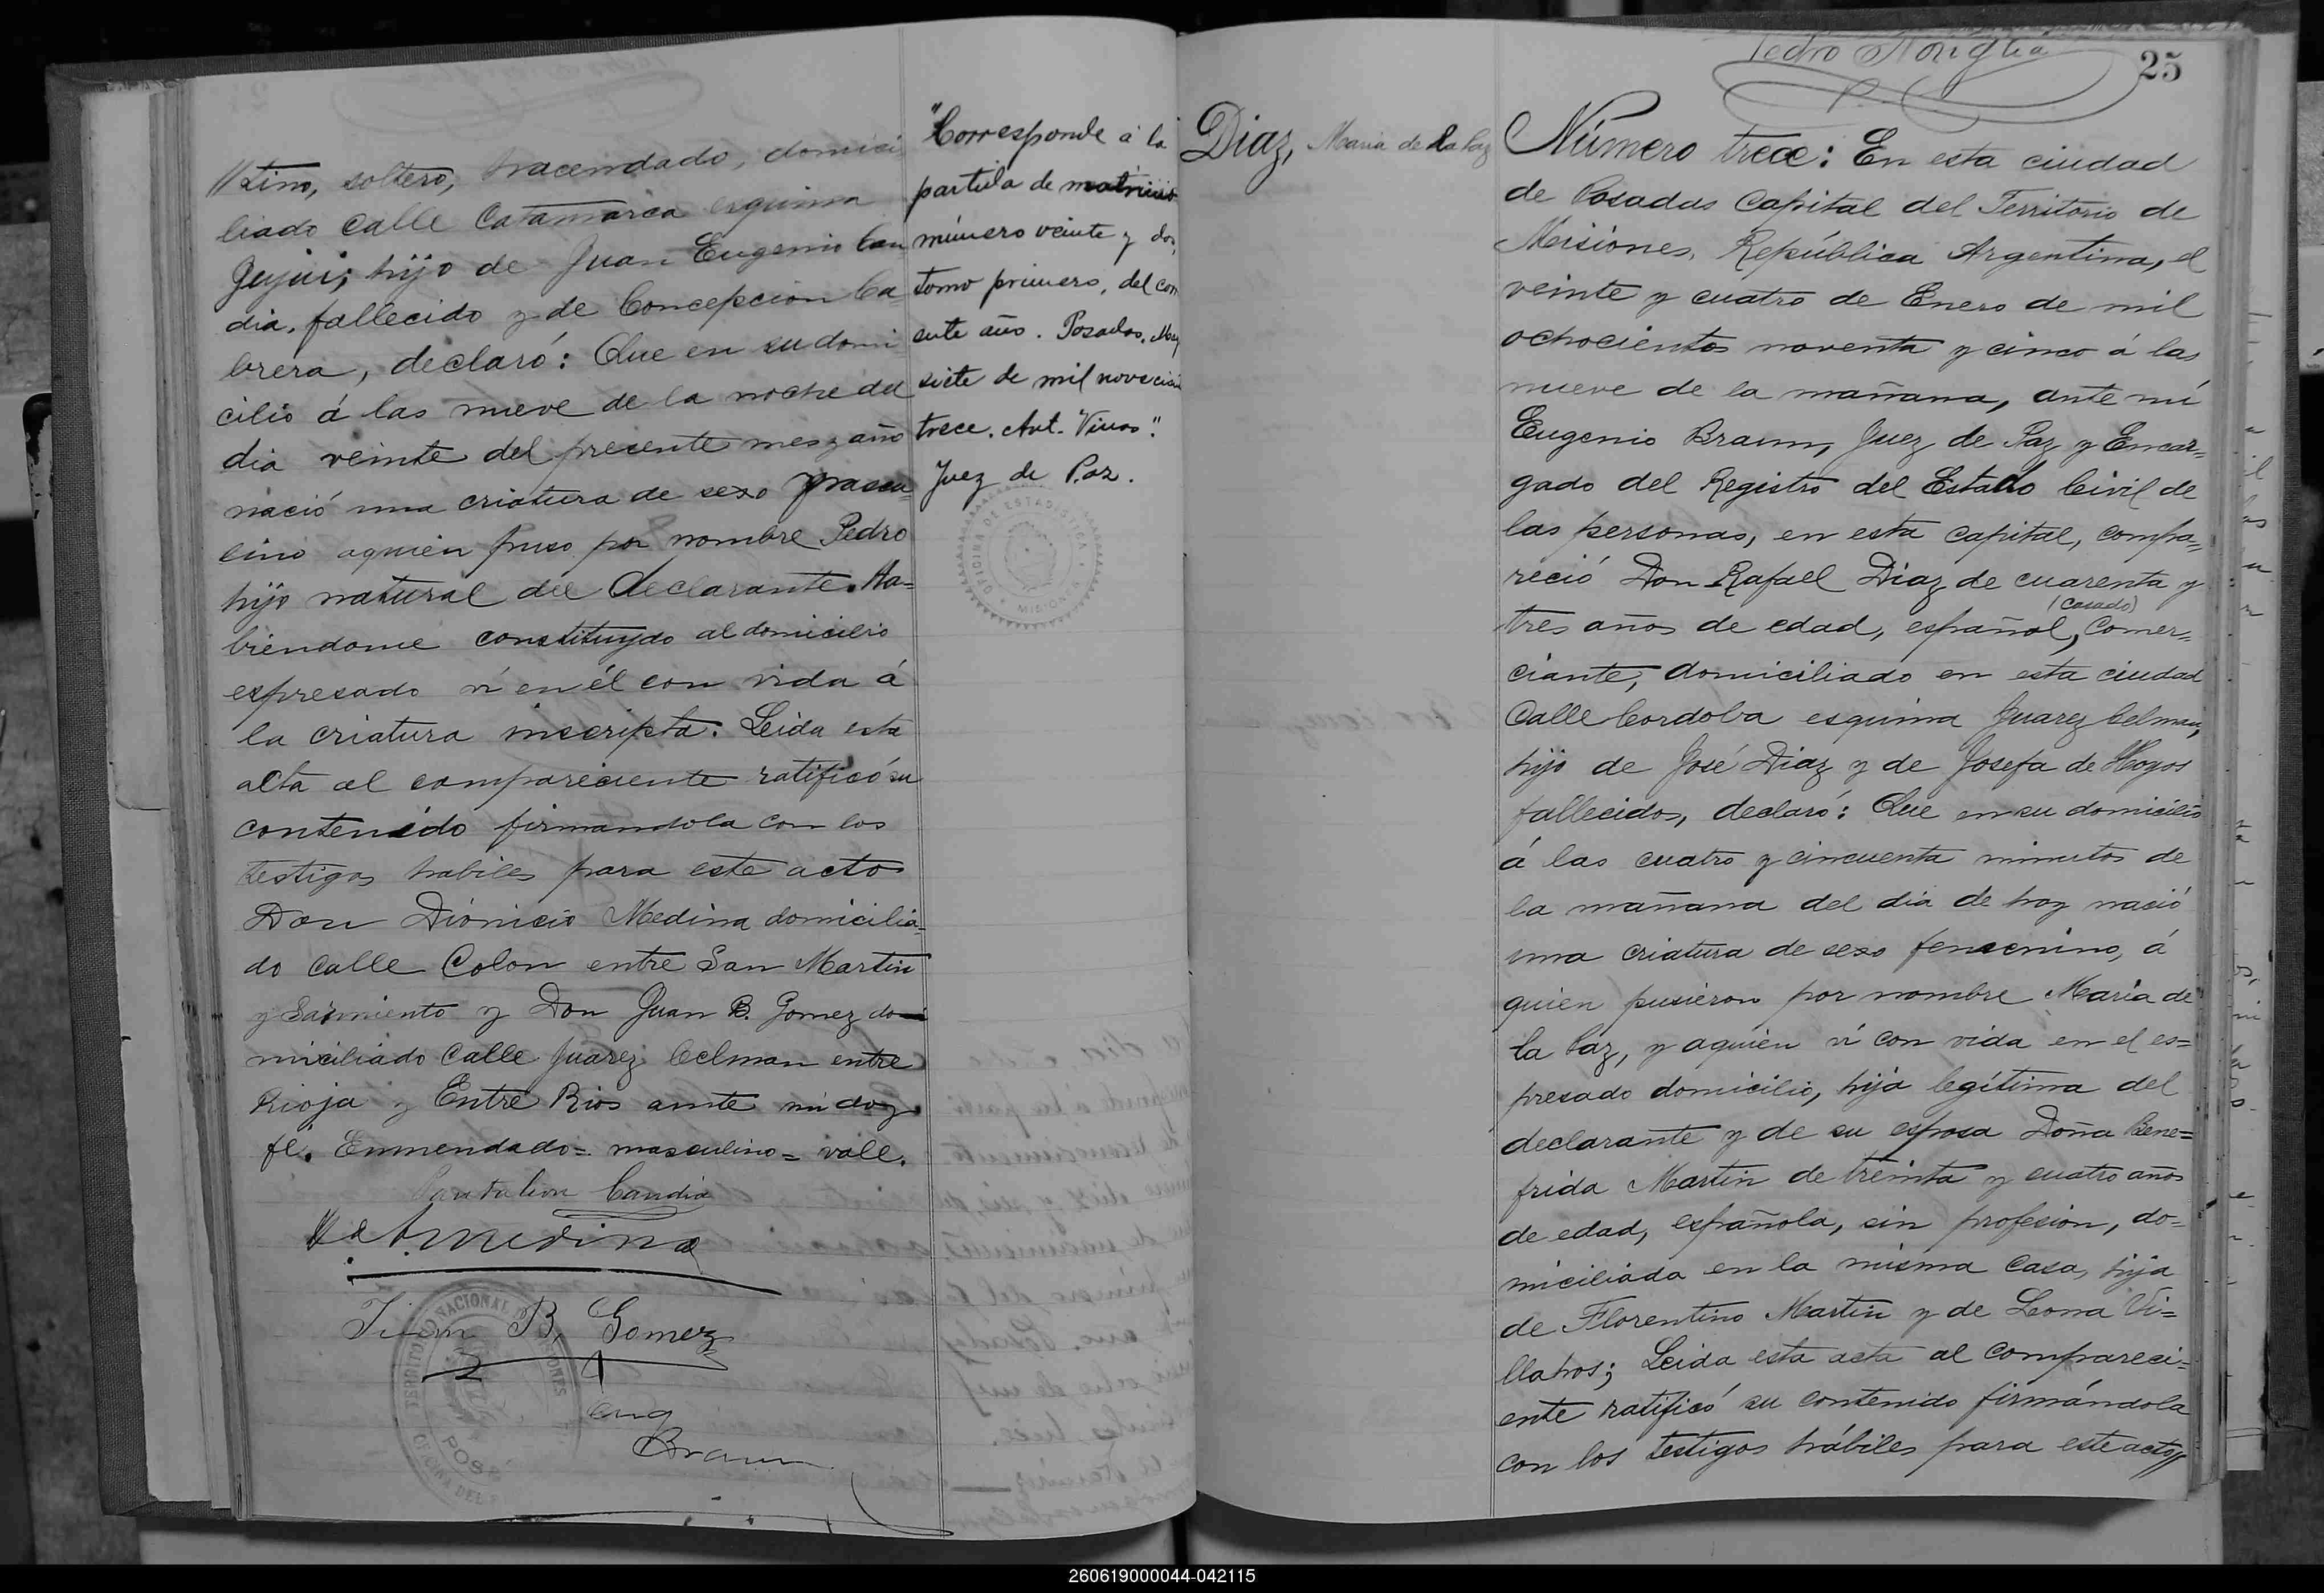 //tino, soltero, hacendado, domici
liado calle Catamarca esquina
Jujui; hijo de Juan Eugenio Can
dia, fallecido y de Concepcion Ca
brera, declaró: Que en su domi
cilio á las nueve de la noche del
dia veinte del presente mes y año
nació una criatura de sexo mascu
lino aquien puso por nombre Pedro
hijo natural del declarante. Ha=
biendome constituydo al domicilio
espresado ví en él con vida á
la criatura inscripta. Leida esta
alta al compareciente ratificó su
contenido firmandola con los
testigos habiles para este acto
Don Dionicio Medina domicilia=
do calle Colon entre San Martin
y Sarmiento y Don Juan B. Gomez do
miciliado Calle Juarez Celman entre
Rioja y Entre Rios ante mi doy
fé. Enmendado= masculino= vale.
Pantaleon Candia
Medina
Juan B. Gomez
Eug
Braun
TERRITORIO NACIONAL DE MISIONES
OFICINA DEL
POSA
"Corresponde á la
partida de matrimonio
número veinte y dos,
tomo primero, del corri
ente año. Posadas,
siete de mil novecien
trece. Ant. Vivas".
Juez de Paz.
OFICINA DE ESTADISTICA
MISIONES
Pedro
25
Diaz, Maria de la Paz
Número trece: En esta ciudad
de Posadas Capital del Territorio de
Misiones, República Argentina, el
veinte y cuatro de Enero de mil
ochocientos noventa y cinco á las
nueve de la mañana, ante mí
Eugenio Braun, Juez de Paz y Encar=
gado del Registro del Estado Civil de
las personas, en esta capital, compa=
reció Don Rafael Diaz de cuarenta y
(casado)
tres años de edad, español, Comer=
ciante, domiciliado en esta ciudad
Calle Cordoba esquina Juarez Celman,
hijo de José Diaz y de Josefa de Hoyos
fallecidos, declaró: Que en su domicilio
á las cuatro y cincuenta minutos de
la mañana del dia de hoy nació
una criatura de sexo femenino, á
quien pusieron por nombre Maria de
la Paz, y aquien ví con vida en el es=
presado domicilio, hija legítima del
declarante y de su esposa Doña Bene=
frida Martin de treinta y cuatro años
de edad, española, sin profesion, do=
miciliada en la misma casa, hija
de Florentino Martin y de Leona Vi=
llahos; Leida esta acta al compareci=
ente ratificó su contenido firmándola
con los testigos hábiles para este acto//
260619000044-042115